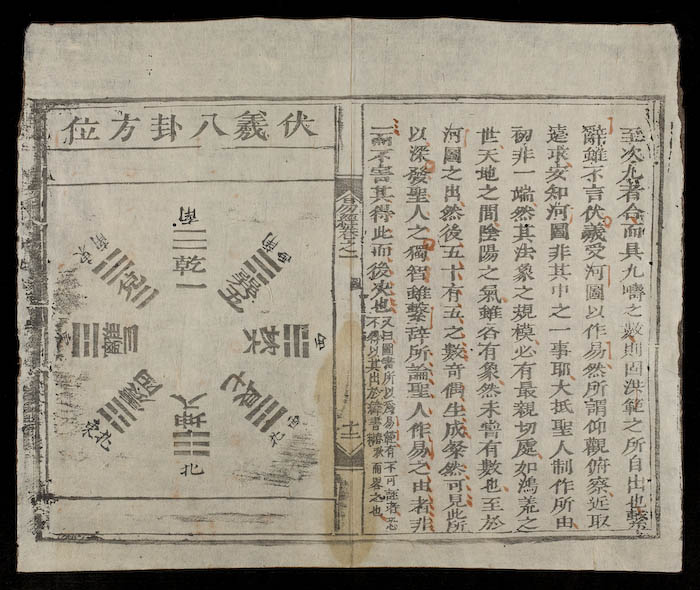 至次九者合而具九疇之數則固洪範之所自出也繫
辭雖不言伏羲受河圖以作易然所謂仰觀俯察近取
遠求安知河圖非其中之一事耶大抵聖人制作所由
初非一端然其法象之規模必有最親切處如鴻荒之
世天地之間陰陽之氣雖各有象然未嘗有數也至於
河圖之出然後五十有五之數奇偶生成粲然可見此所
以深發聖人之獨智雖繫辞所論聖人作易之由者非
一而不害其得此而後决也
又曰圖書所以為易範有不可誣者恐
不得以其出於緯書而畧之也
易經
十二
伏羲八卦方位
南
乾一
西南
巽五
西
坎六
西北
艮七
北
坤八
東北
震四
離三
東南
兌二